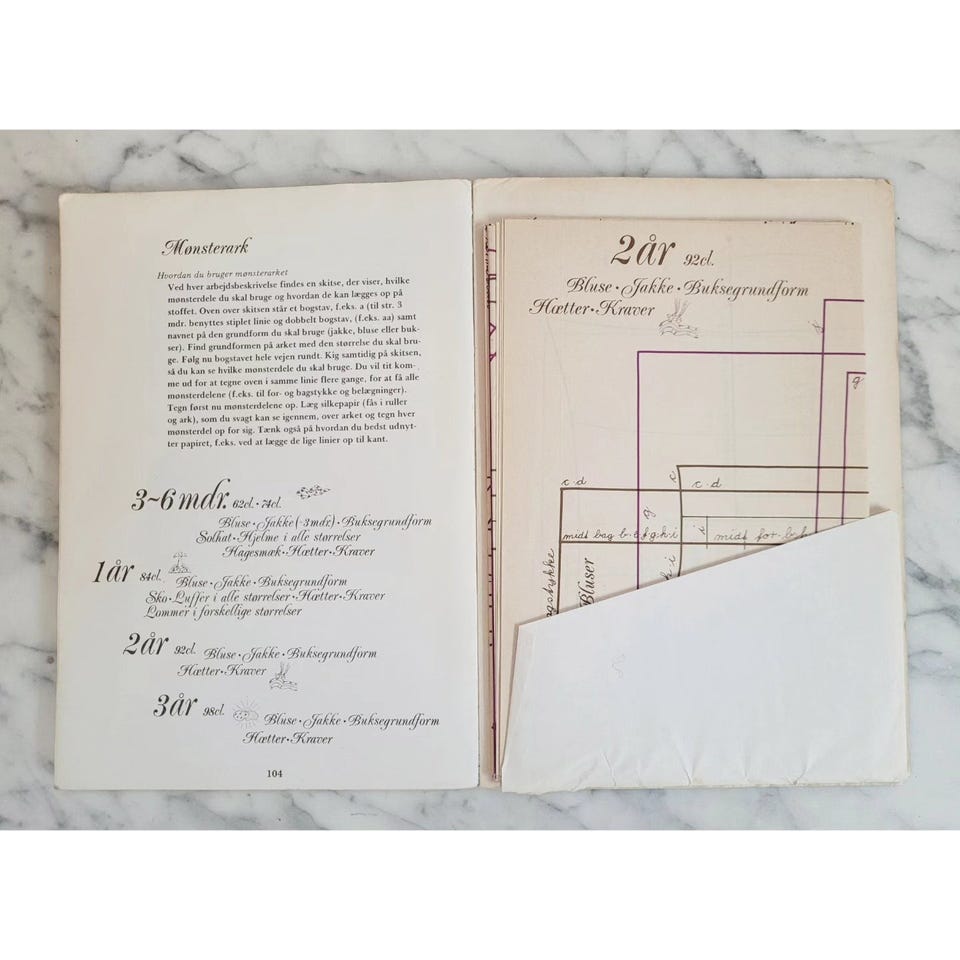 Mønsterark
Hvordan du bruger mønsterarket
Ved hver arbejdsbeskrivelse findes en skitse, der viser, hvilke
mønsterdele du skal bruge og hvordan de kan lægges op på
stoffet. Oven over skitsen står et bogstav, f.eks. a (til str. 3
mdr. benyttes stiplet linie og dobbelt bogstav, (f.eks. aa) samt
navnet på den grundform du skal bruge (jakke, bluse eller buk-
ser). Find grundformen på arket med den størrelse du skal bru-
ge. Følg nu bogstavet hele vejen rundt. Kig samtidig på skitsen,
så du kan se hvilke mønsterdele du skal bruge. Du vil tit kom-
me ud for at tegne oven i samme linie flere gange, for at få alle
mønsterdelene (f.eks. til for- og bagstykke og belægninger).
Tegn først nu mønsterdelene op. Læg silkepapir (fås i ruller
og ark), som du svagt kan se igennem, over arket og tegn hver
mønsterdel op for sig. Tænk også på hvordan du bedst udnyt-
ter papiret, f.eks. ved at lægge de lige linier op til kant.
3~6 mdr. 62cl. · 74cl.
Bluse · Jakke (·3mdr.) · Buksegrundform
Solhat · Hjelme i alle størrelser
Hagesmæk · Hætter · Kraver
1år 84cl.
Bluse · Jakke · Buksegrundform
Sko · Luffer i alle størrelser · Hætter · Kraver
Lommer i forskellige størrelser
2år 92cl. Bluse · Jakke · Buksegrundform
Hætter · Kraver
3år 98cl.
Bluse · Jakke · Buksegrundform
Hætter · Kraver
104
2år 92cl.
Bluse · Jakke · Buksegrundform
Hætter · Kraver
g
c · d
c
c · d
g
midt bag
i
midt for
Bluser